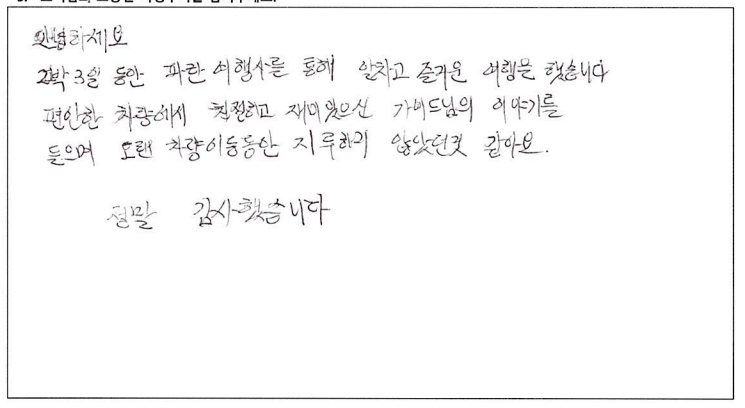 안녕하세요
2박 3일 동안 파란 여행사를 통해 알차고 즐거운 여행을 했습니다
편안한 차량에서 친절하고 재미있으신 가이드님의 이야기를
들으며 오랜 차량이동동안 지루하지 않았던것 같아요.
정말 감사했습니다